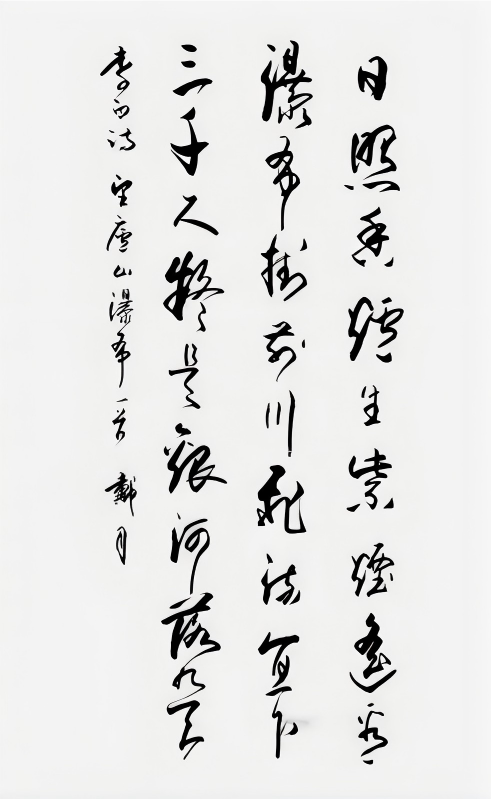 日照香爐生紫煙遙看
瀑布掛前川飛流直下
三千尺疑是銀河落九天
李白詩 望廬山瀑布一首 戴月